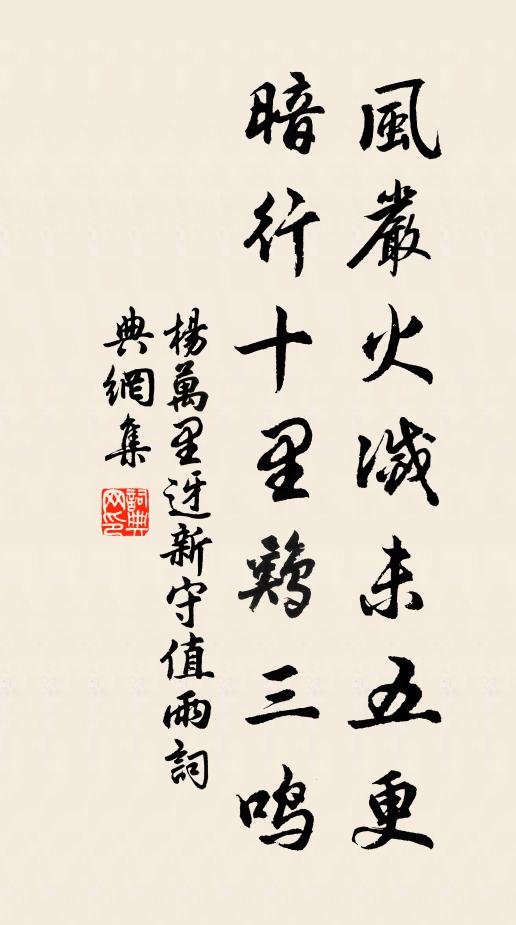 風嚴火滅未五更
暗行十里鷄三鳴
楊萬里迓新守值雨詞
典網集
詞典網印